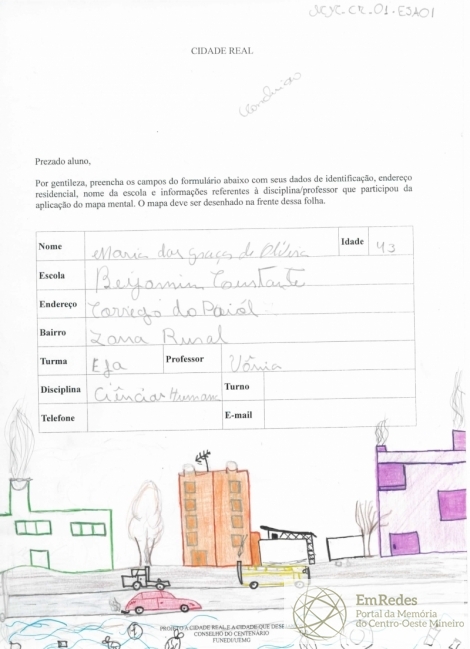 CIDADE REAL
Prezado aluno,
Por gentileza, preencha os campos do formulário abaixo com seus dados de identificação, endereço
residencial, nome da escola e informações referentes à disciplina/professor que participou da
aplicação do mapa mental. O mapa deve ser desenhado na frente dessa folha.
Nome Maria das graças de Idade 43
Escola Beijamin Constante
Endereço Corrego do Paiól
Bairro Zona Rural
Turma Eja Professor Vônia
Disciplina Ciências Humana Turno
Telefone E-mail
PROJETO A CIDADE REAL E A CIDADE QUE
CONSELHO DO CENTENÁRIO
FUNEDI/UEMG
EmRedes
Portal da Memória
do Centro-Oeste Mineiro